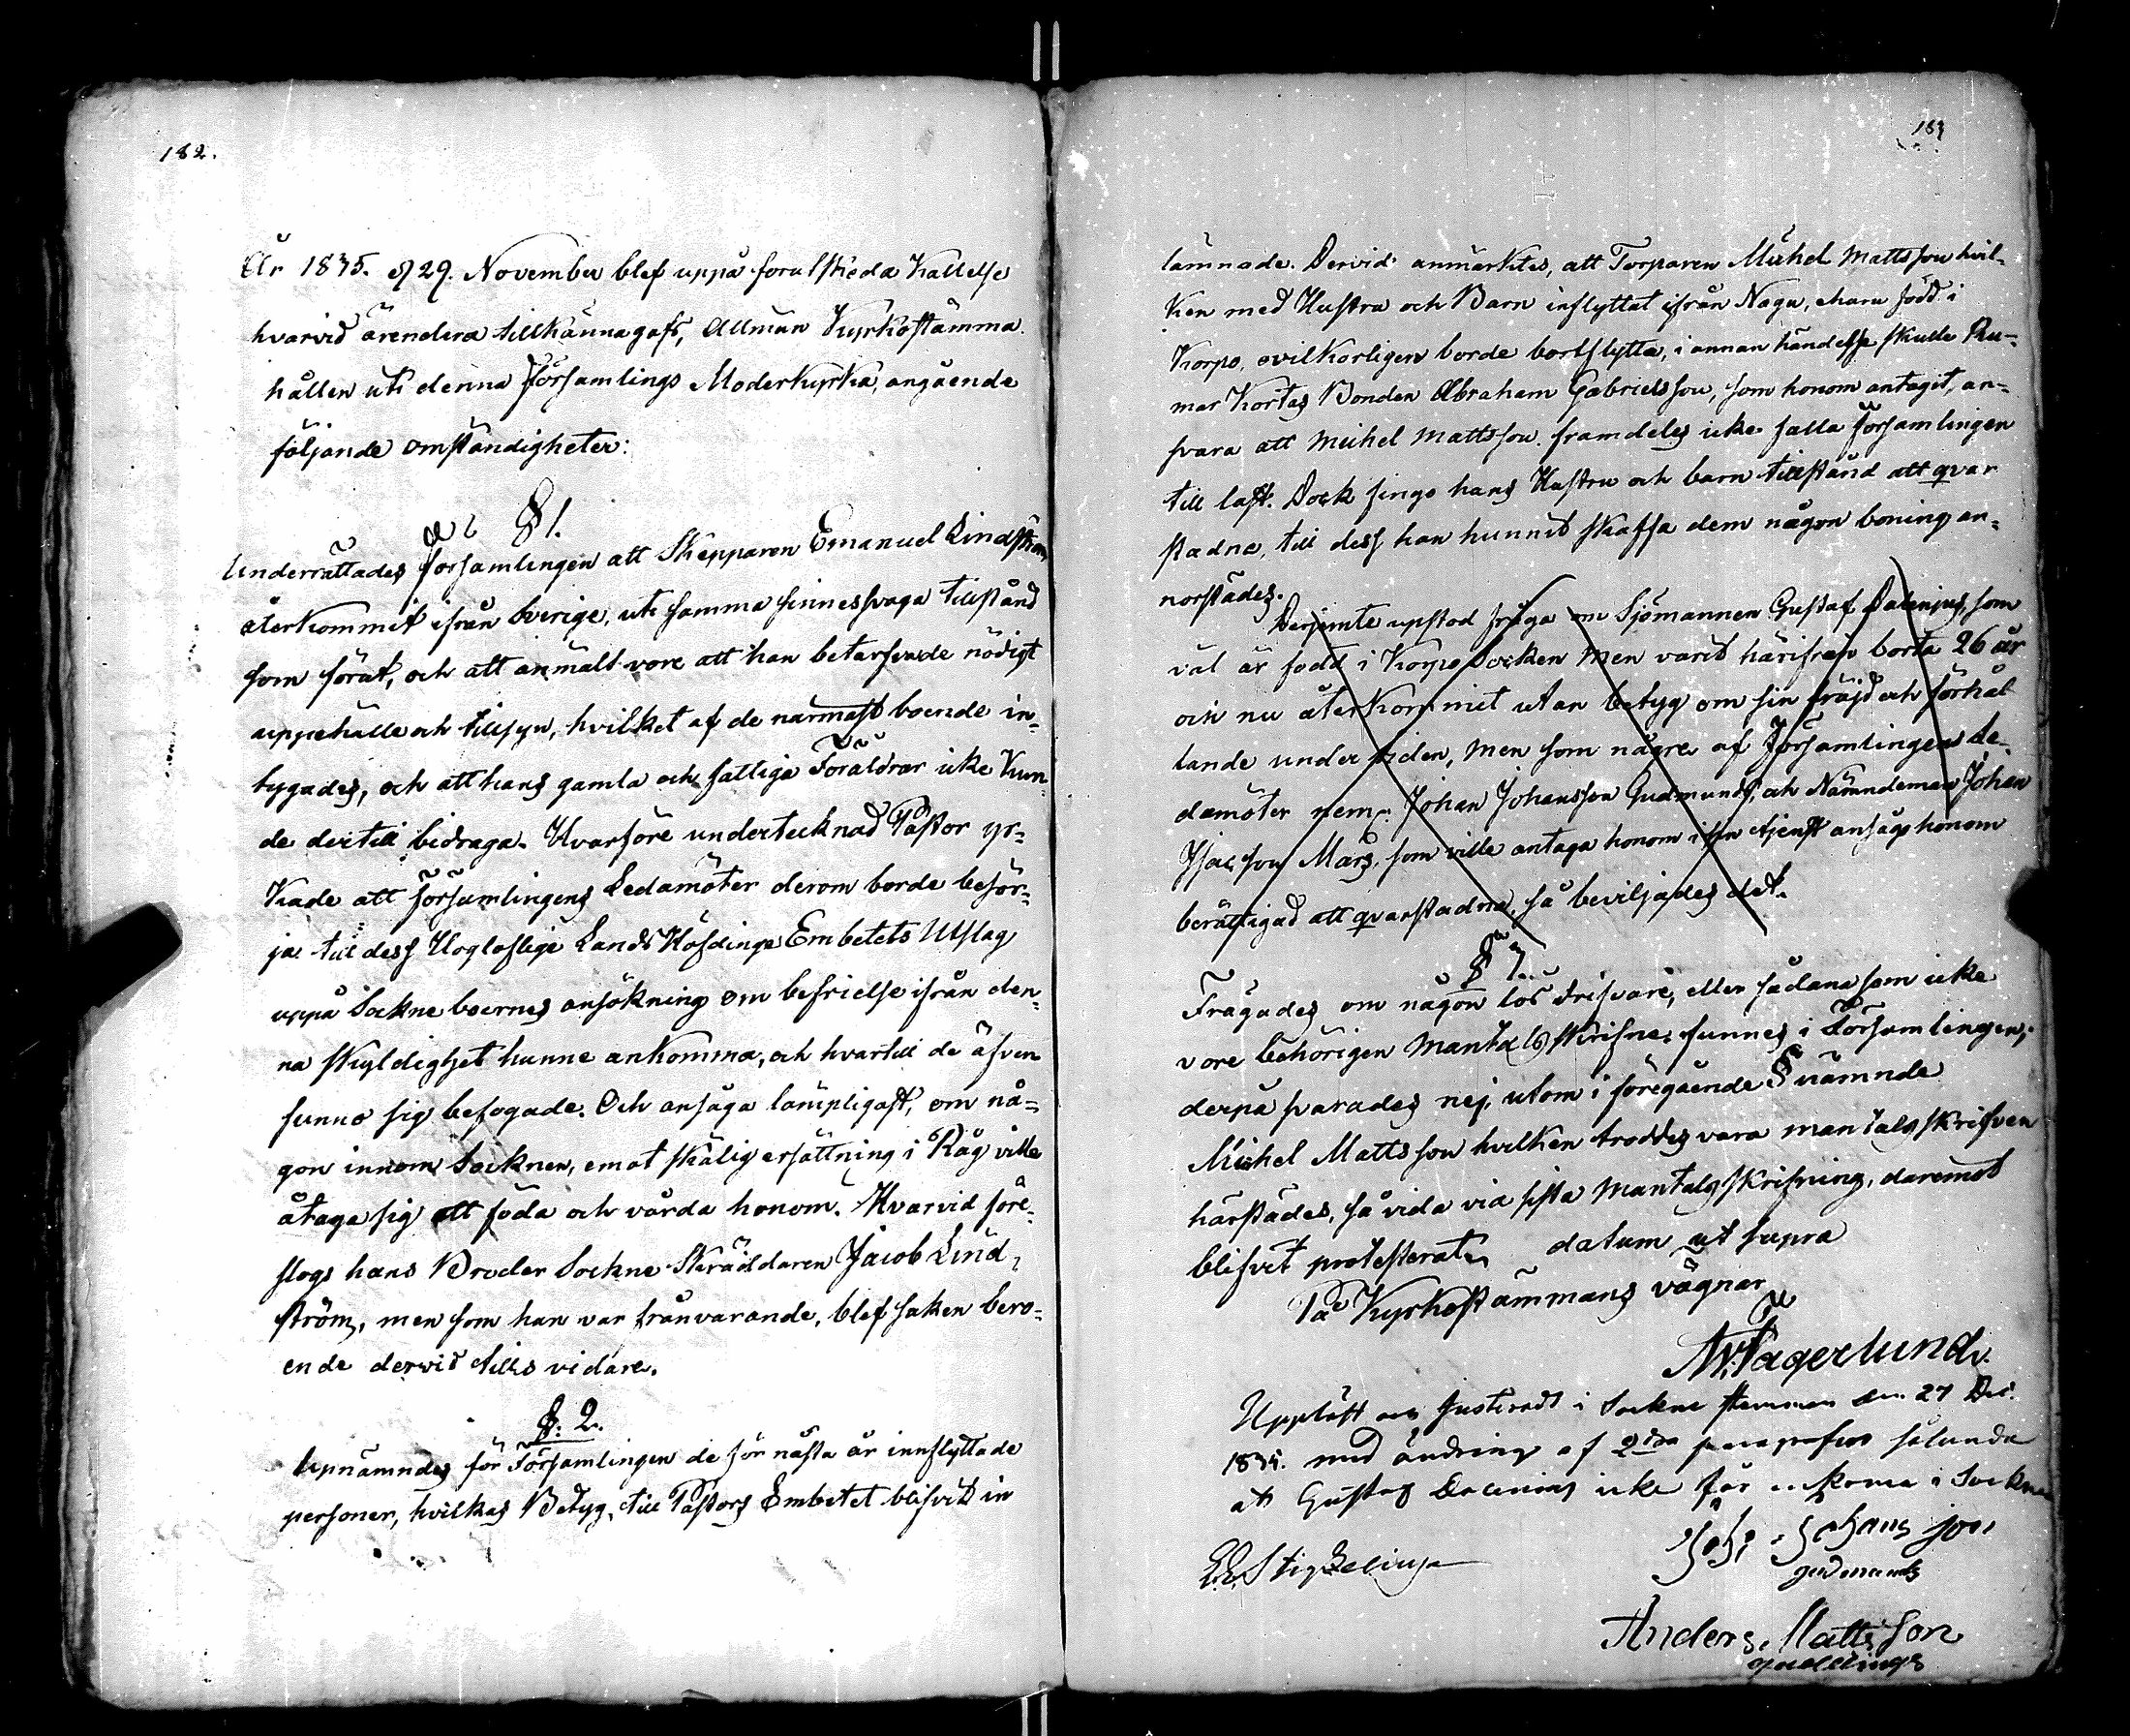 182.
År 1835. d 29. November blef uppå forutskieda Kallelse
hvarvid ärendena tillkännagafs, Allmän Kyrkostämma
hållen uti denna Församlings Moderkyrka, angående
följande omständigheter:
§ 1.
Underrättades församlingen att Skepparen Emanuel Lindström
återkommit ifrån Sverige, uti samma sinnessvaga tillstånd
som förut, och att anmält vore att han betarfvade nödigt
uppehälle och tillsyn, hvilket af de närmast boende in-
tygades, och att hans gamla och fattiga Föräldrar icke kun-
de dertill bidraga. Hvarföre undertecknad Pastor yr-
kade att församlingens Ledamöter derom borde besör-
ja till dess Högloflige Lands Höfdinge Embetets Utslag
uppå Sockneboernes ansökning om befrielse ifrån den-
na skyldighet hunne ankomma, och hvartill de äfven
funno sig befogade. Och ansågo lämpligast, om nå-
gon innom Socknen, emot skälig ersättning i Råg ville
åtaga sig att föda och vårda honom. Hvarvid före-
slogs hans Broder Sockne Skräddaren Jacob Lind-
ström, men som han var frånvarande, blef saken bero-
ende dervid tills vidare.
§. 2.
Upnämndes för Församlingen de för nästa år innflyttade
personer, hvilkas Betyg till Pastors Embetet blifvit in
183
lämnade. Dervid anmärktes, att Torparen Michel Mattsson hvil-
ken med Hustru och Barn inflyttat ifrån Nagu, ehuru född i
Korpo, ovilkorligen borde bortflytta, i annan händelse skulle Ru-
mar Kortas Bonden Abraham Gabrielsson, som honom antagit, an-
svara att Michel Mattsson framdeles icke falla Församlingen
till last. Dock fingo hans Hustru och barn tillstånd att qvar
stadna, till dess han hunnit skaffa dem någon boning an-
norstädes.
Derjemte upstod fråga om Sjömannen Gustaf Dalenius, som
väl är född i Korpo Socken men varit härifrån borta 26 år
och nu återkommit utan betyg om sin fräjd och förhål
lande under tiden, men som några af Församlingens Le-
damöter nem. Johan Johansson Gudmunds, och Nämndeman Johan
Isacsson Mårs, som ville antaga honom i sin tjenst ansågo honom
berättigad att qvarstadna, så beviljades det.
§
Frågades om någon lös drifvare, eller sådana som icke
vore behörigen Mantalsskrifne, funnes i Församlingen;
derpå svarades nej, utom i föregående § nämnde
Michel Mattsson hvilken troddes vara mantalsskrifven
härstädes, så vida vid sista Mantalsskrifning, daremot
blifvit protesterat. datum ut supra
På Kyrkostämmans vägnar
Fagerlund.
Uppläst och Justerad i Sockne stemman den 27 Dec.
1835. med ändring af 2dra paragrafen sålunda
att Gustaf Dalenius icke får inkoma i Socknen
Joh: Johans son
gudmunds
Anders Matts son